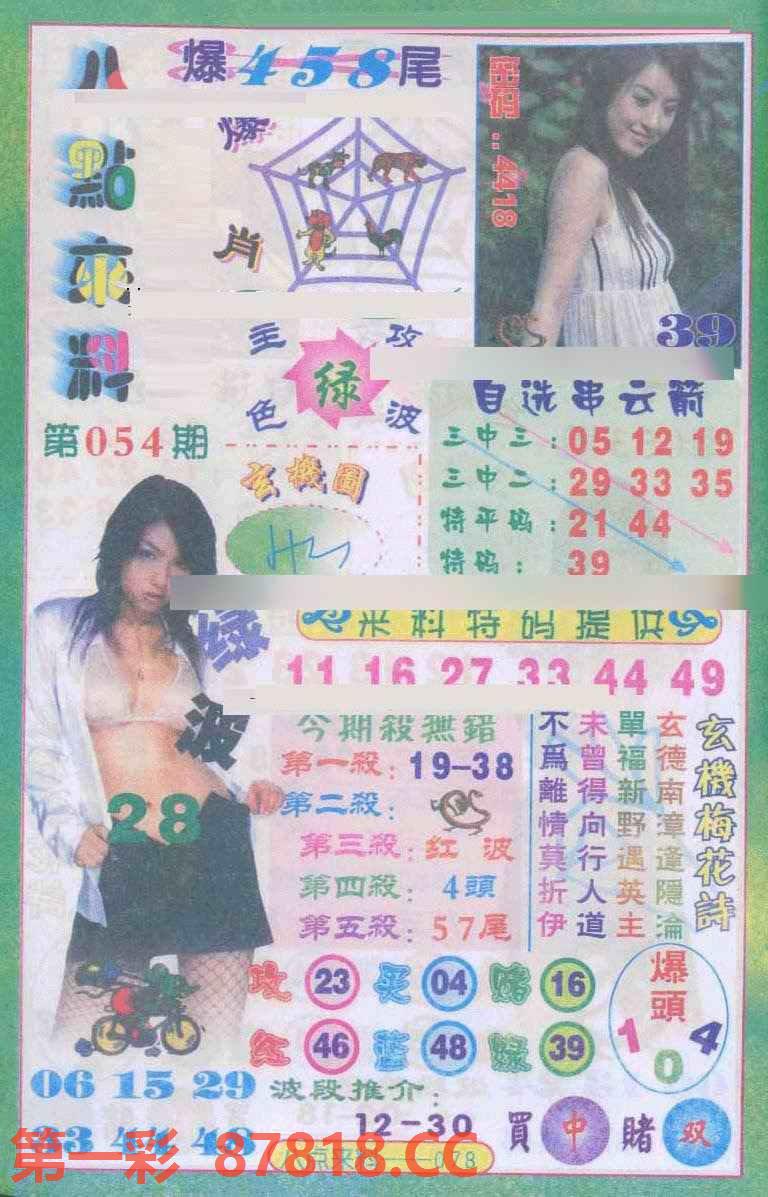 八點來料
爆458尾
爆肖
出空..4418
39
主攻
绿
色波
第054期
玄機圖
自选串云箭
三中三：05 12 19
三中二：29 33 35
特平码：21 44
特码：39
来料特码提供
11 16 27 33 44 49
绿波
28
今期殺無錯
第一殺：19-38
第二殺：
第三殺：红波
第四殺：4頭
第五殺：57尾
玄機梅花詩
玄德南漳逢隱淪
單福新野遇英主
未曾得向行人道
不爲離情莫折伊
攻 23 买 04 赌 16
红 46 蓝 48 绿 39
爆頭
1 0 4
06 15 29
33 44 48
波段推介：
12-30
買中賭双
第一彩 87818.CC
078